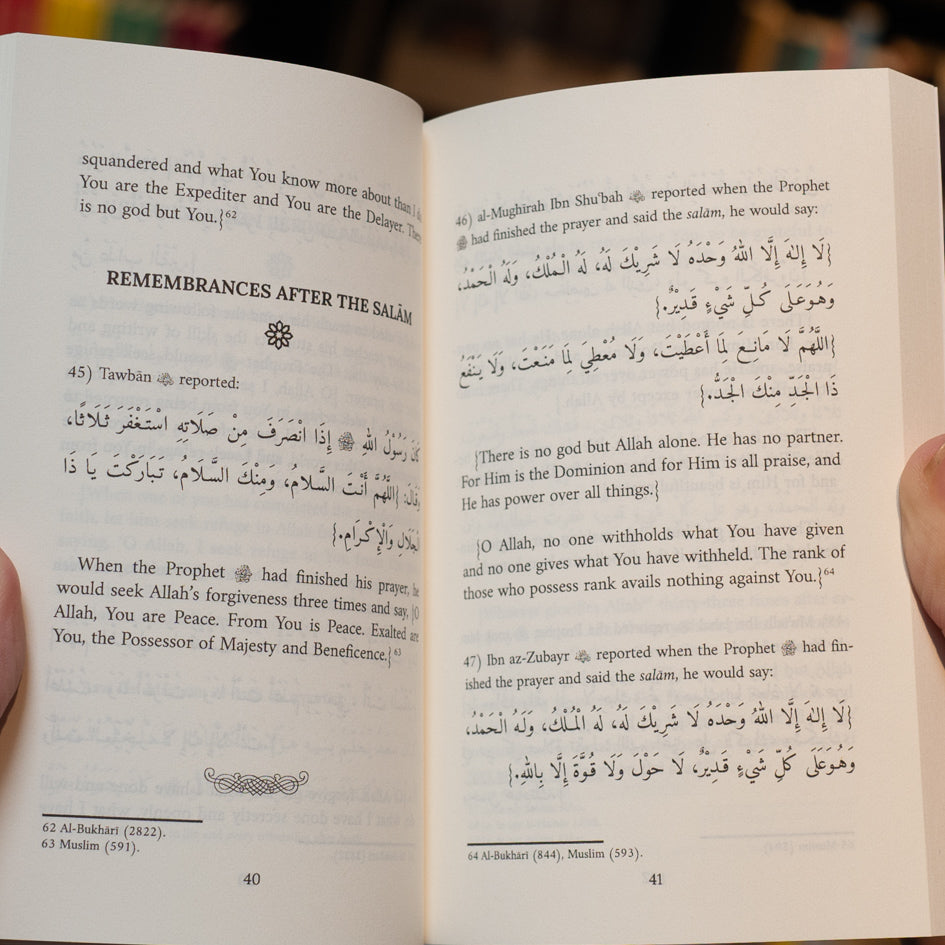 squandered and what You know more about than I do
You are the Expediter and You are the Delayer. There
is no god but You.}62
REMEMBRANCES AFTER THE SALĀM
45) Tawbān reported:
كَانَ رَسُوْلُ اللهِ ﷺ إِذَا انْصَرَفَ مِنْ صَلَاتِهِ اسْتَغْفَرَ ثَلَاثًا،
وَقَالَ: {اللَّهُمَّ أَنْتَ السَّلَامُ، وَمِنْكَ السَّلَامُ، تَبَارَكْتَ يَا ذَا
الْجَلَالِ وَالْإِكْرَامِ.}
When the Prophet ﷺ had finished his prayer, he
would seek Allah's forgiveness three times and say, {O
Allah, You are Peace. From You is Peace. Exalted are
You, the Possessor of Majesty and Beneficence.}63
62 Al-Bukhārī (2822).
63 Muslim (591).
40
46) al-Mughīrah Ibn Shu'bah reported when the Prophet
ﷺ had finished the prayer and said the salām, he would say:
{لَا إِلٰهَ إِلَّا اللهُ وَحْدَهُ لَا شَرِيْكَ لَهُ، لَهُ الْمُلْكُ، وَلَهُ الْحَمْدُ،
وَهُوَ عَلَى كُلِّ شَيْءٍ قَدِيْرٌ.}
{اللَّهُمَّ لَا مَانِعَ لِمَا أَعْطَيْتَ، وَلَا مُعْطِيَ لِمَا مَنَعْتَ، وَلَا يَنْفَعُ
ذَا الْجَدِّ مِنْكَ الْجَدُّ.}
{There is no god but Allah alone. He has no partner.
For Him is the Dominion and for Him is all praise, and
He has power over all things.}
{O Allah, no one withholds what You have given
and no one gives what You have withheld. The rank of
those who possess rank avails nothing against You.}64
47) Ibn az-Zubayr reported when the Prophet ﷺ had fin-
ished the prayer and said the salām, he would say:
{لَا إِلٰهَ إِلَّا اللهُ وَحْدَهُ لَا شَرِيْكَ لَهُ، لَهُ الْمُلْكُ، وَلَهُ الْحَمْدُ،
وَهُوَ عَلَى كُلِّ شَيْءٍ قَدِيْرٌ، لَا حَوْلَ وَلَا قُوَّةَ إِلَّا بِاللهِ.}
64 Al-Bukhārī (844), Muslim (593).
41